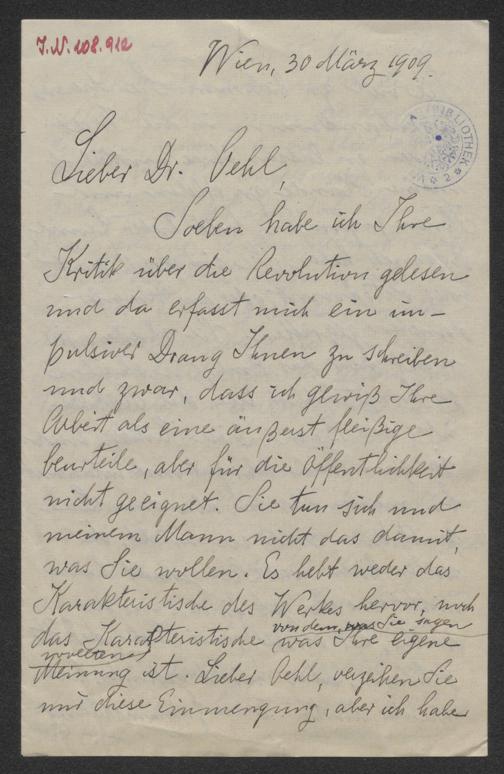 J.N. 108.912
Wien, 30 März 1909.
BIBLIOTHEK
Lieber Dr. Oehl,
Soeben habe ich Ihre
Kritik über die Revolution gelesen
und da erfasst mich ein im-
pulsiver Drang Ihnen zu schreiben
und zwar, dass ich gewiß Ihre
Arbeit als eine äußerst fleißige
beurteile, aber für die Öffentlichkeit
nicht geeignet. Sie tun sich und
meinem Mann nicht das damit,
was Sie wollen. Es hebt weder das
Karakteristische des Werkes hervor, noch
von dem, was Sie sagen
das Karakteristische was Ihre eigene
wollten
Meinung ist. Lieber Oehl, verzeihen Sie
mir diese Einmengung, aber ich habe